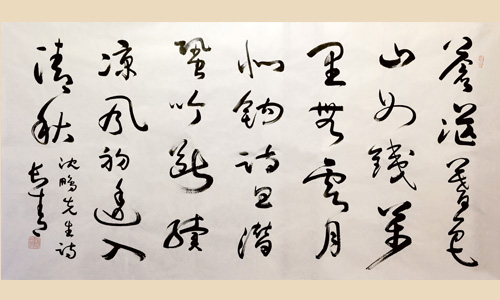 蒼茫暮色
山如綫萬
里無雲月
似鈎詩思潛
蛩吟斷續
凉風初透入
清秋
沈鵬先生詩